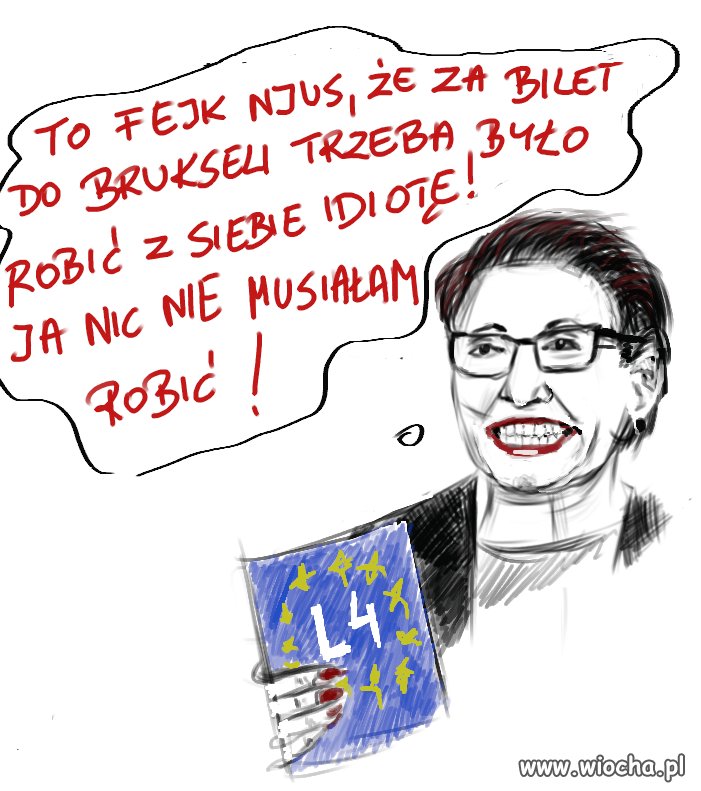 TO FEJK NJUS, ŻE ZA BILET
DO BRUKSELI TRZEBA BYŁO
ROBIĆ Z SIEBIE IDIOTĘ!
JA NIC NIE MUSIAŁAM
ROBIĆ!
L4
www.wiocha.pl